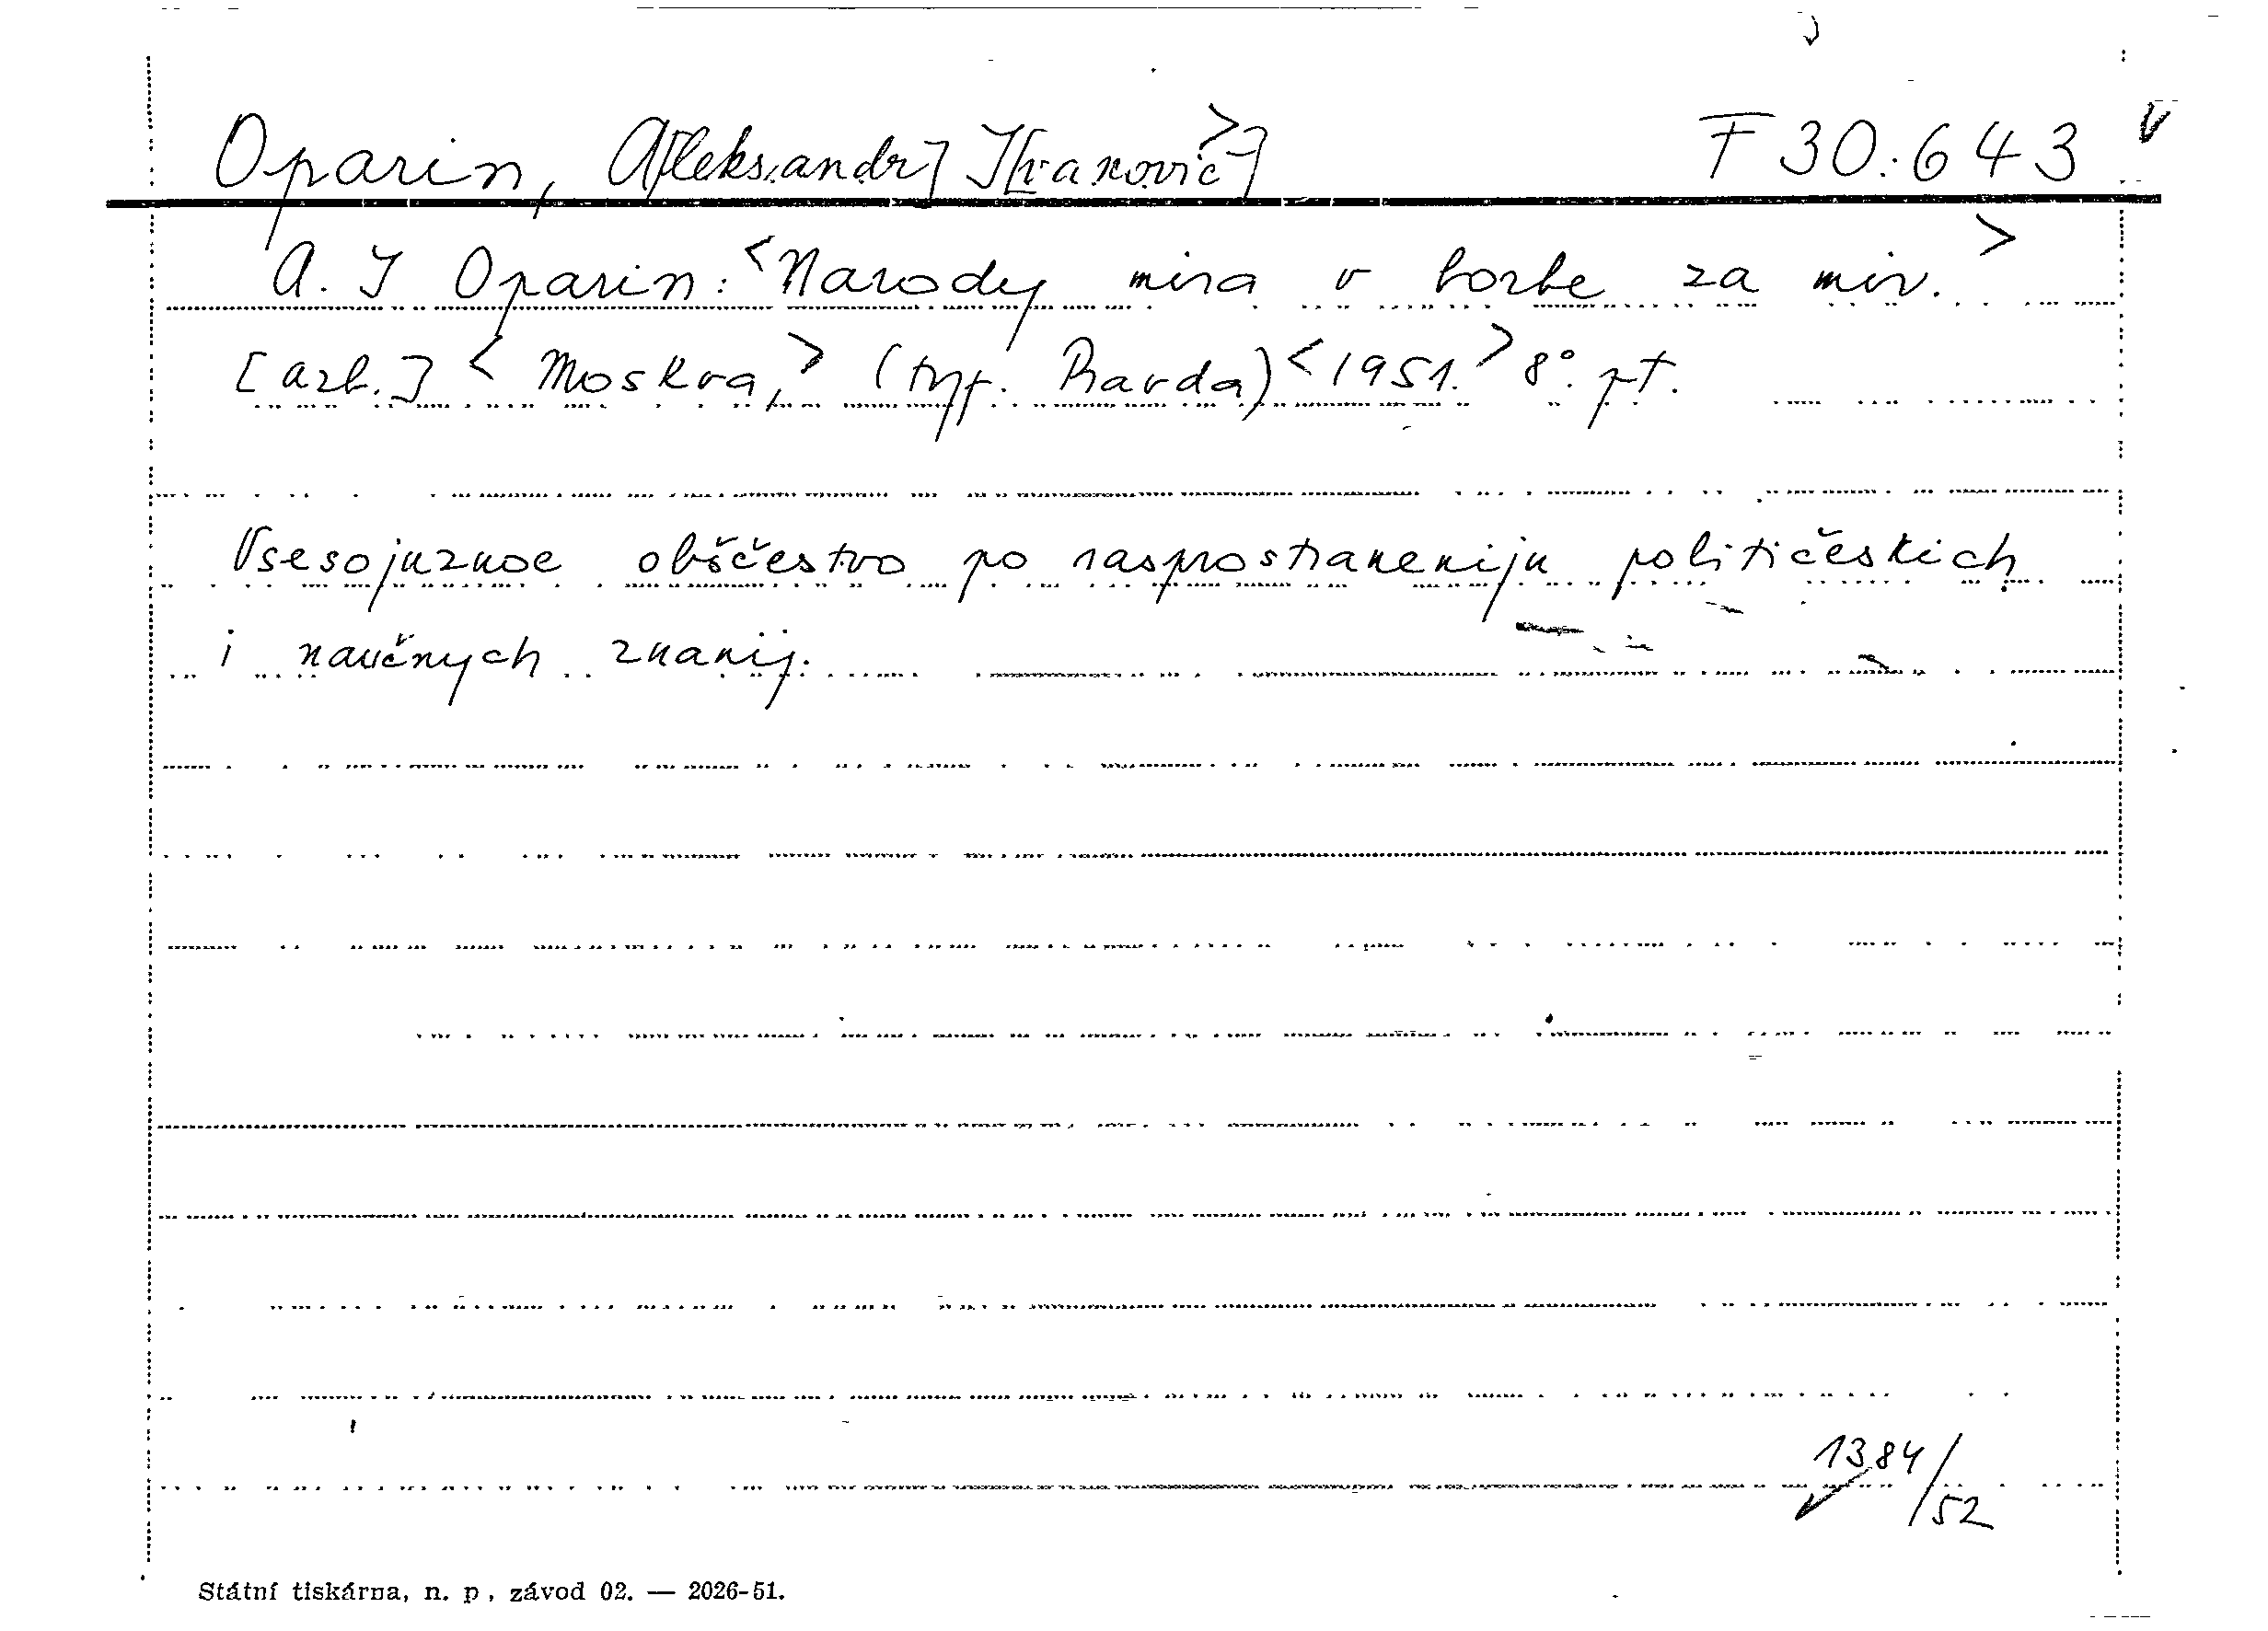 Oparin, A[leksandr] I[vanovič>] F 30.643 V
A. I Oparin: <Narody mira v borbe za mir.>
[azb.] <Moskva,> (typ. Pravda) <1951.> 8°. pt.
Vsesojuznoe obščestvo po rasprostraneniju politíčeskich
i naučnych znanij.
1384/52
Státní tiskárna, n. p., závod 02. — 2026-51.